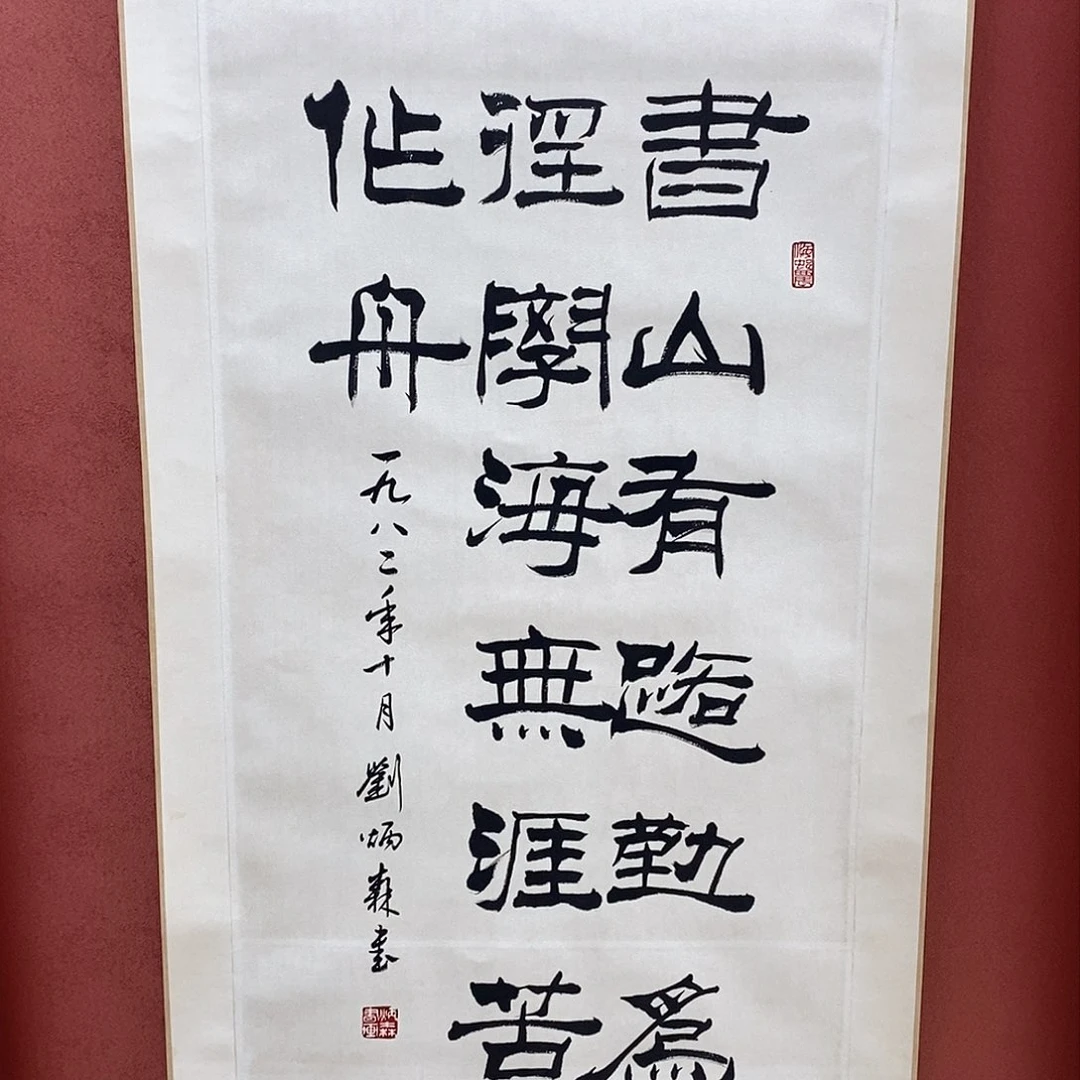 書山有路勤為
徑學海無涯苦
作舟
一九八二年十月劉炳森書